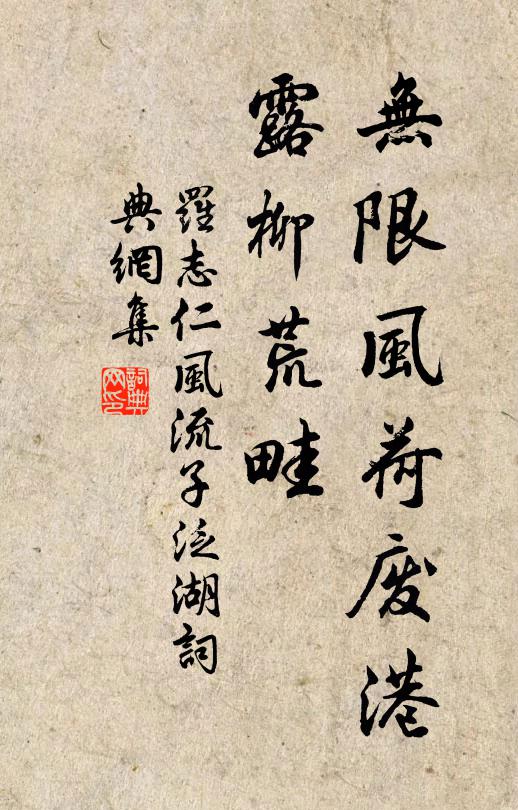 無限風荷废港
露柳荒畦
羅志仁風流子泛湖詞
典網集
詞典
网印